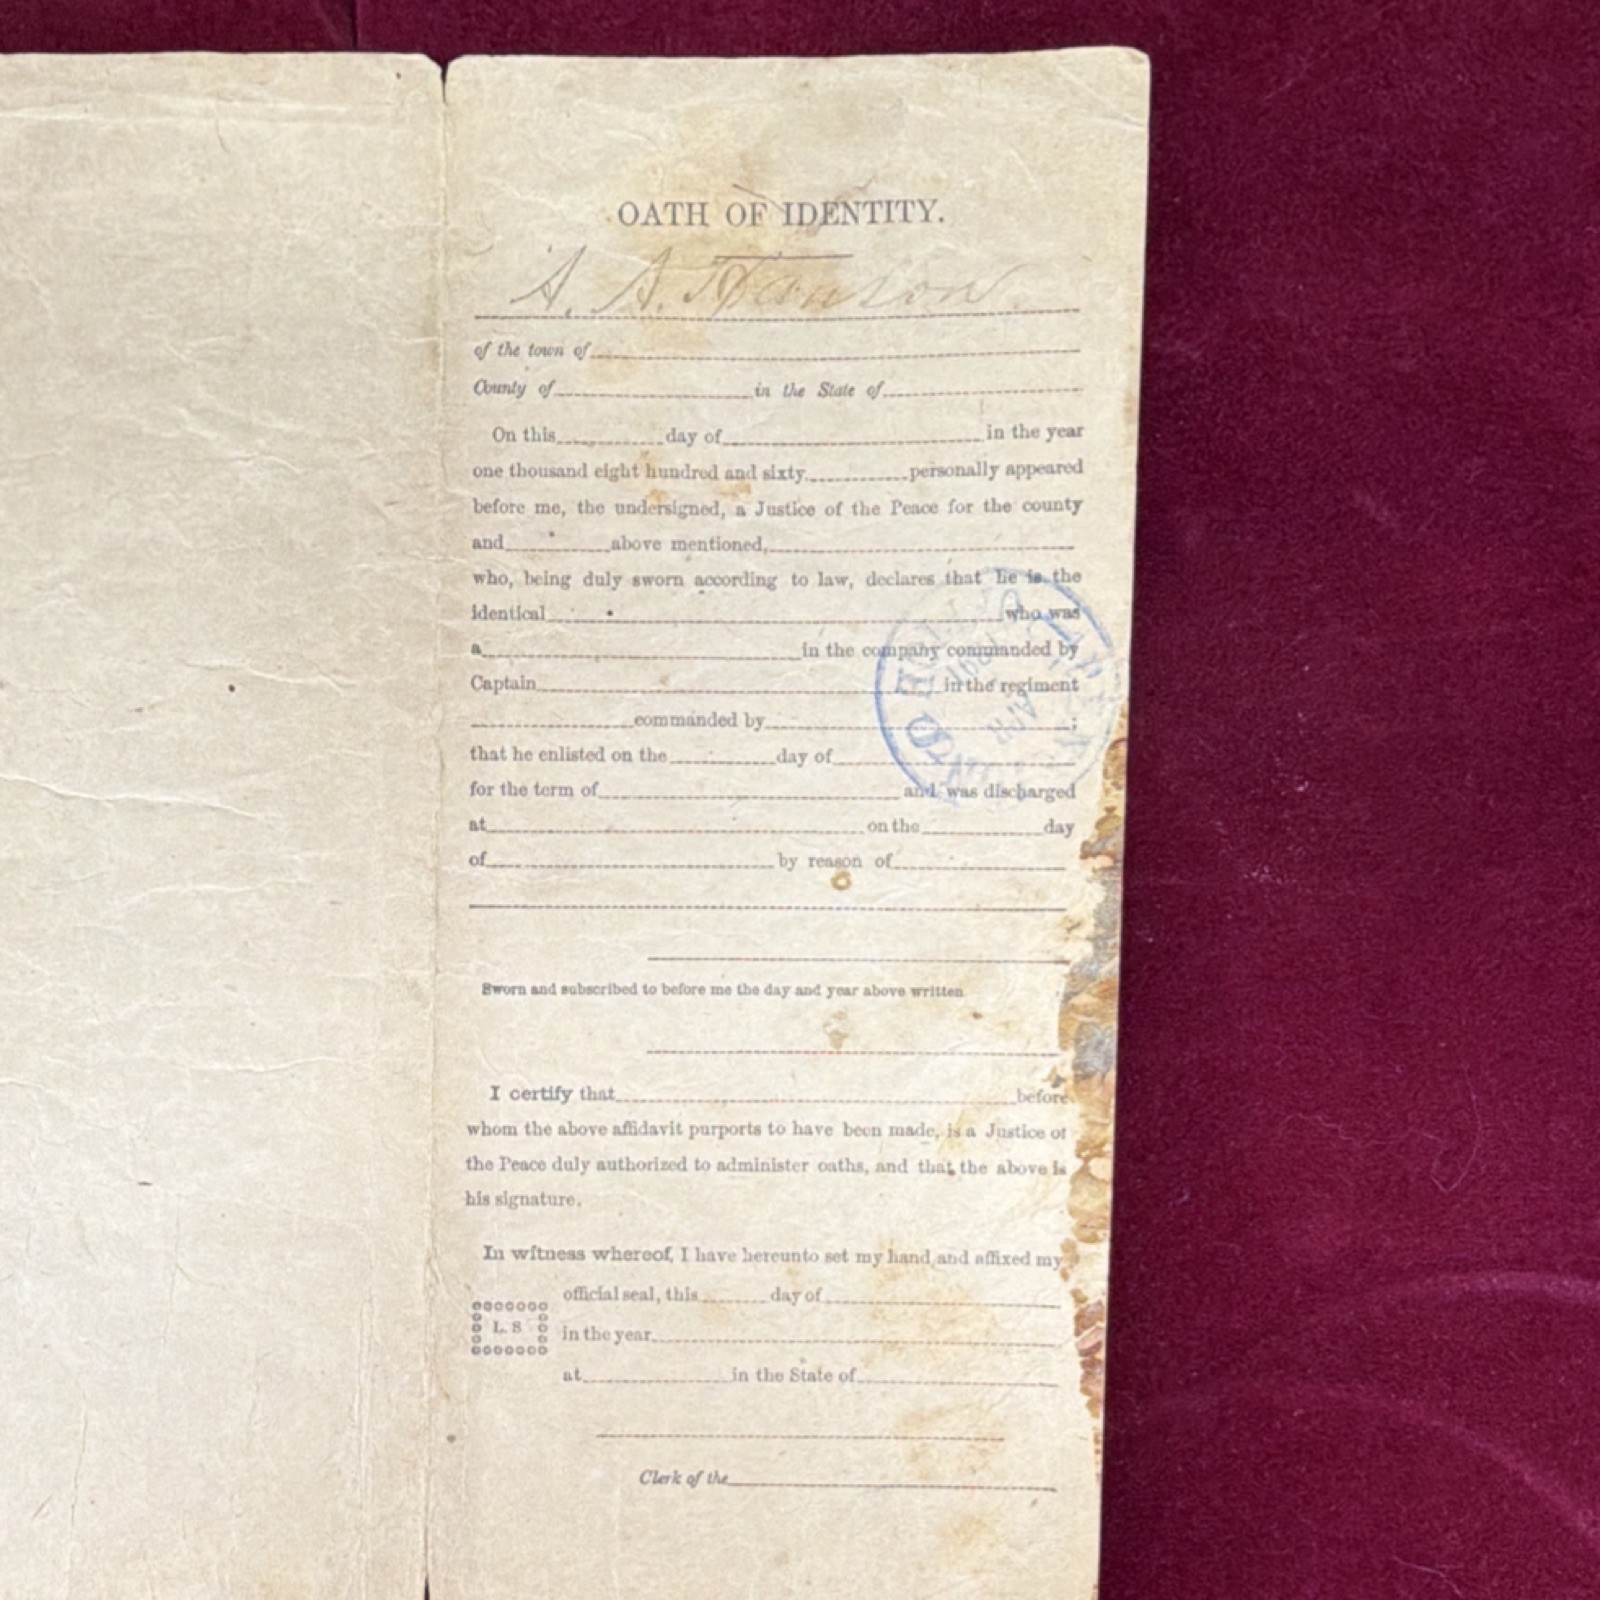 OATH OF IDENTITY.
A. A.
of the town of
County of in the State of
On this day of in the year
one thousand eight hundred and sixty personally appeared
before me, the undersigned, a Justice of the Peace for the county
and above mentioned,
who, being duly sworn according to law, declares that he is the
identical who was
a in the company commanded by
Captain in the regiment
commanded by ;
that he enlisted on the day of
for the term of and was discharged
at on the day
of by reason of
Sworn and subscribed to before me the day and year above written
I certify that before
whom the above affidavit purports to have been made, is a Justice of
the Peace duly authorized to administer oaths, and that the above is
his signature.
In witness whereof, I have hereunto set my hand and affixed my
official seal, this day of
L. S
in the year
at in the State of
Clerk of the
APR